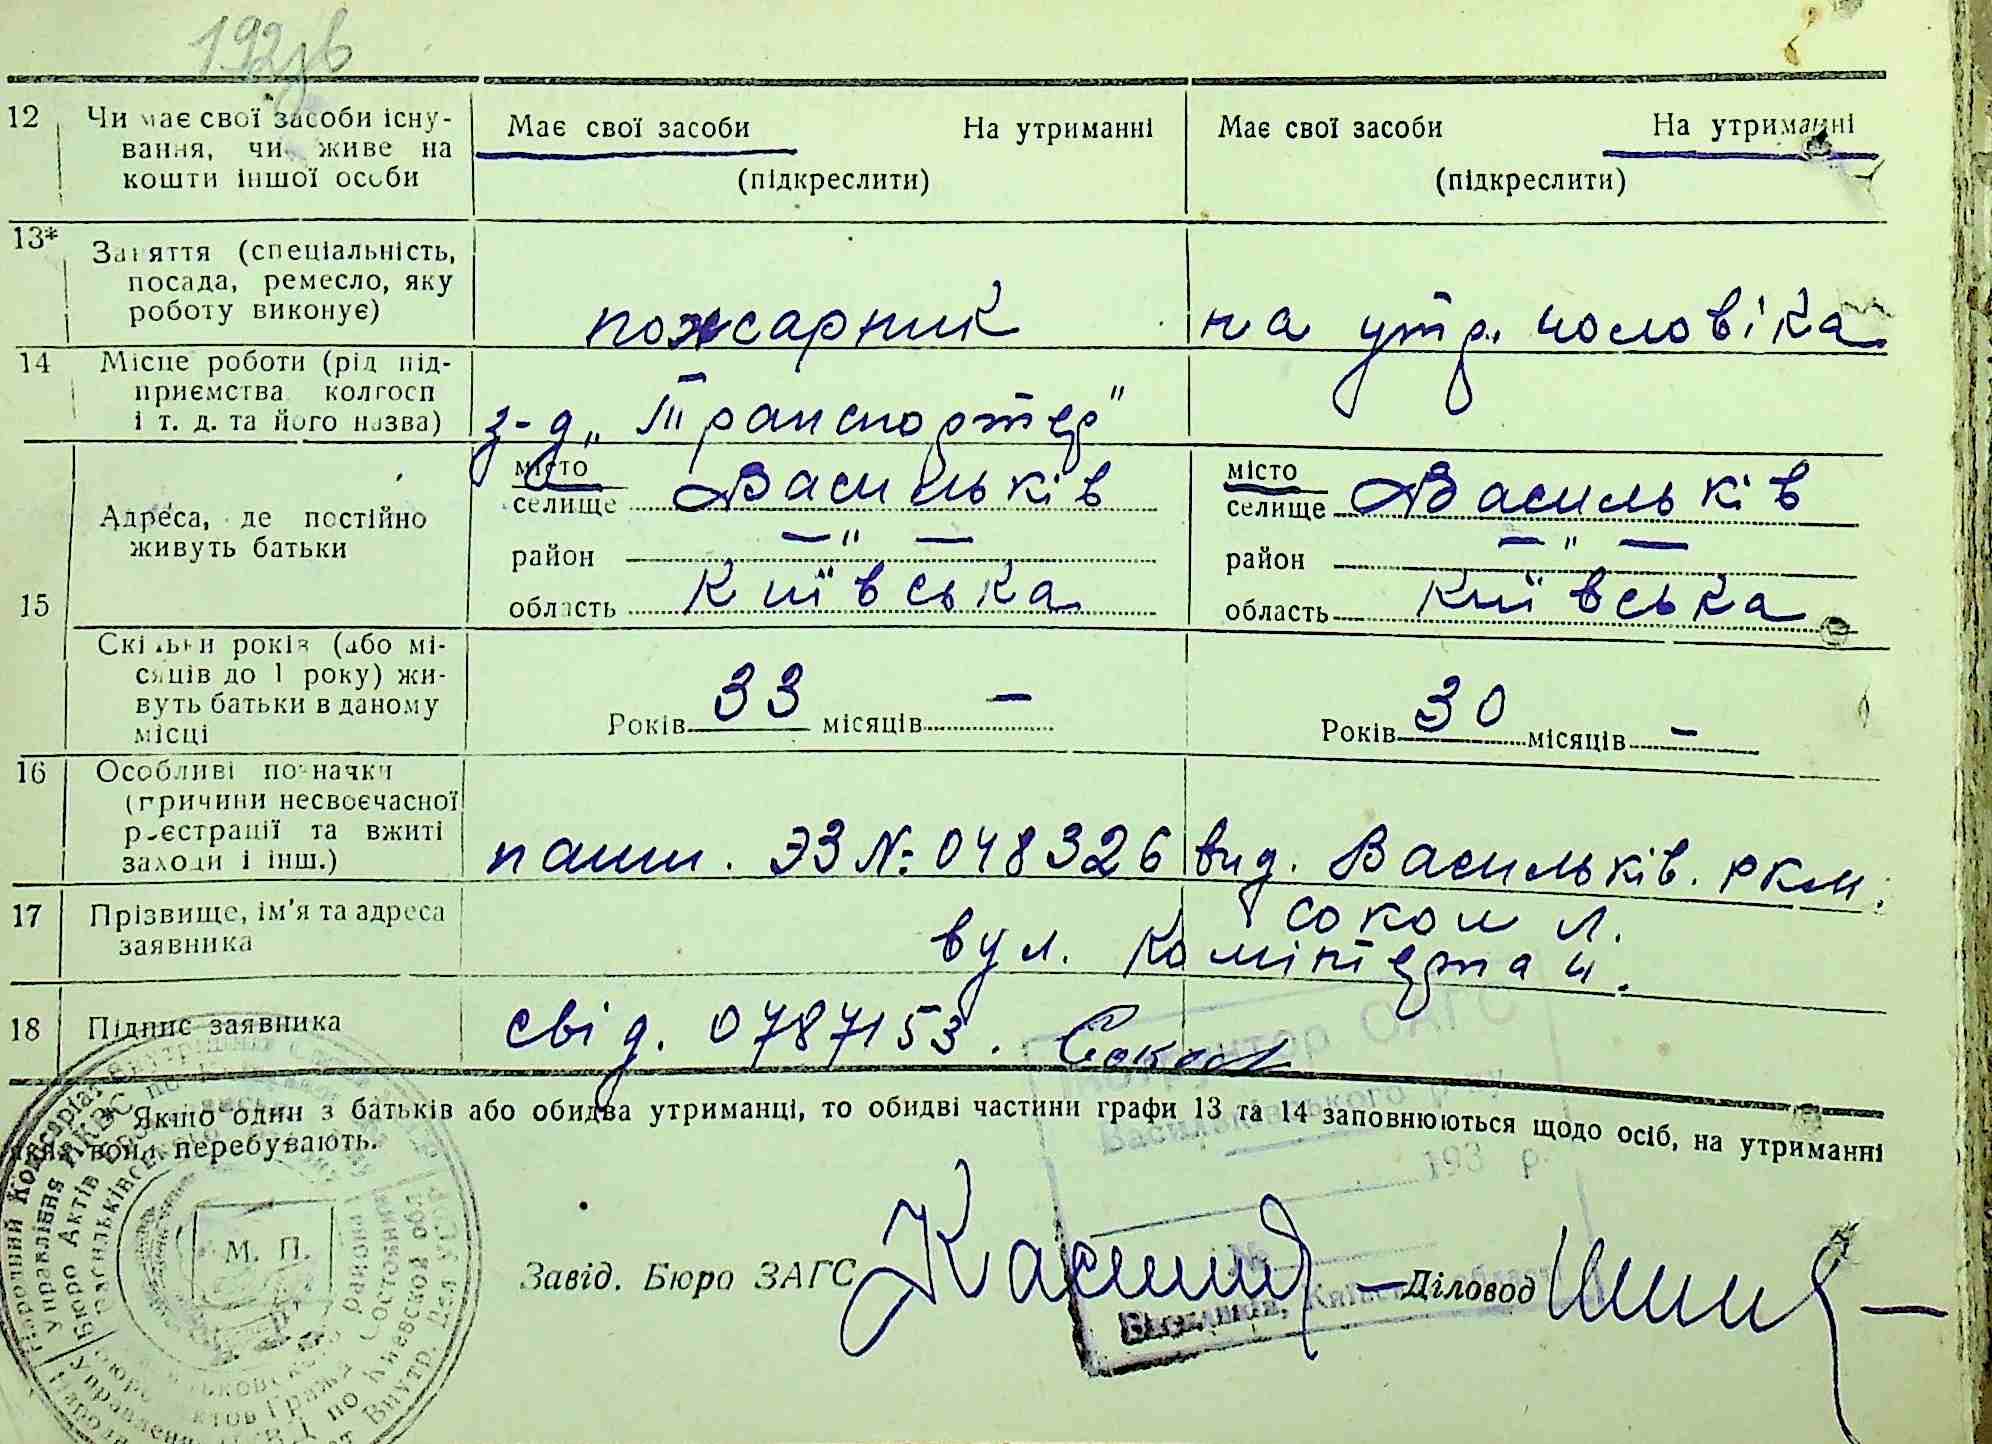 192зв
12 Чи має свої засоби існу-
вання, чи живе на
кошти іншої особи
Має свої засоби На утриманні
(підкреслити)
Має свої засоби На утриманні
(підкреслити)
13* Заняття (спеціальність,
посада, ремесло, яку
роботу виконує)
пожарник
на утр. чоловіка
14 Місце роботи (рід під-
приємства колгосп
і т. д. та його назва)
з-д „Транспортер"
15 Адреса, де постійно
живуть батьки
місто
селище Васильків
район —"—
область Київська
місто
селище Васильків
район —"—
область Київська
Скільки років (або мі-
сяців до 1 року) жи-
вуть батьки в даному
місці
Років 33 місяців —
Років 30 місяців —
16 Особливі позначки
(причини несвоєчасної
реєстрації та вжиті
заходи і інш.)
пашп. ЭЗ № 048326 вид. Васильків. РКМ.
17 Прізвище, ім'я та адреса
заявника
Сокол Л.
вул. Комінтерна 4.
18 Підпис заявника
свід. 0787153. Сокол
Якщо один з батьків або обидва утриманці, то обидві частини графи 13 та 14 заповнюються щодо осіб, на утриманні
яких вони перебувають.
М. П.
Завід. Бюро ЗАГС
Діловод
ОАГС
Васильківського р-ну
193 р.
№
Народний Комісаріат Внутрішніх Справ
Управління НКВС по Київській
Бюро Актів